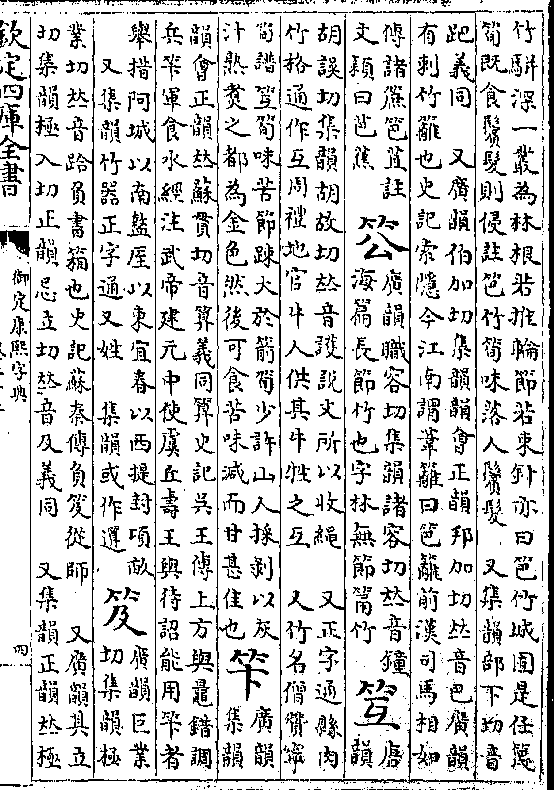 竹駢深一叢為林根若推輪節若束針亦曰笆竹城固是任篾
筍既食鬢髮則侵註笆竹筍味落人鬢髮 又集韻部下切音
跁義同 又廣韻伯加切集韻韻會正韻邦加切𠀤音巴廣韻
有刺竹籬也史記索隱今江南謂葦籬曰笆籬前漢司馬相如
傳諸蔗笆苴註
文穎曰笆蕉
䇗
廣韻職容切集韻諸容切𠀤音鐘
海篇長節竹也字林無節筩竹
䇘
唐
韻
胡誤切集韻胡故切𠀤音護說文所以收繩 又正字通縣肉
竹格通作互周禮地官牛人供其牛牲之互 又竹名僧贊寧
筍譜䇘筍味苦節疎大於箭筍少許山人採剝以灰
汁熟煑之都為金色然後可食苦味減而甘甚佳也
笇
廣韻
集韻
韻會正韻𠀤蘇貫切音算義同算史記吳王傳上方與鼂錯調
兵笇軍食水經注武帝建元中使虞丘壽王與待詔能用笇者
舉措阿城以南盩厔以東宜春以西提封項畝
又集韻竹器正字通又姓 集韻或作選
笈
廣韻巨業
切集韻極
業切𠀤音跲負書箱也史記蘇秦傳負笈從師 又廣韻其立
切集韻極入切正韻忌立切𠀤音及義同 又集韻正韻𠀤極
欽定四庫全書
御定康熙字典
四